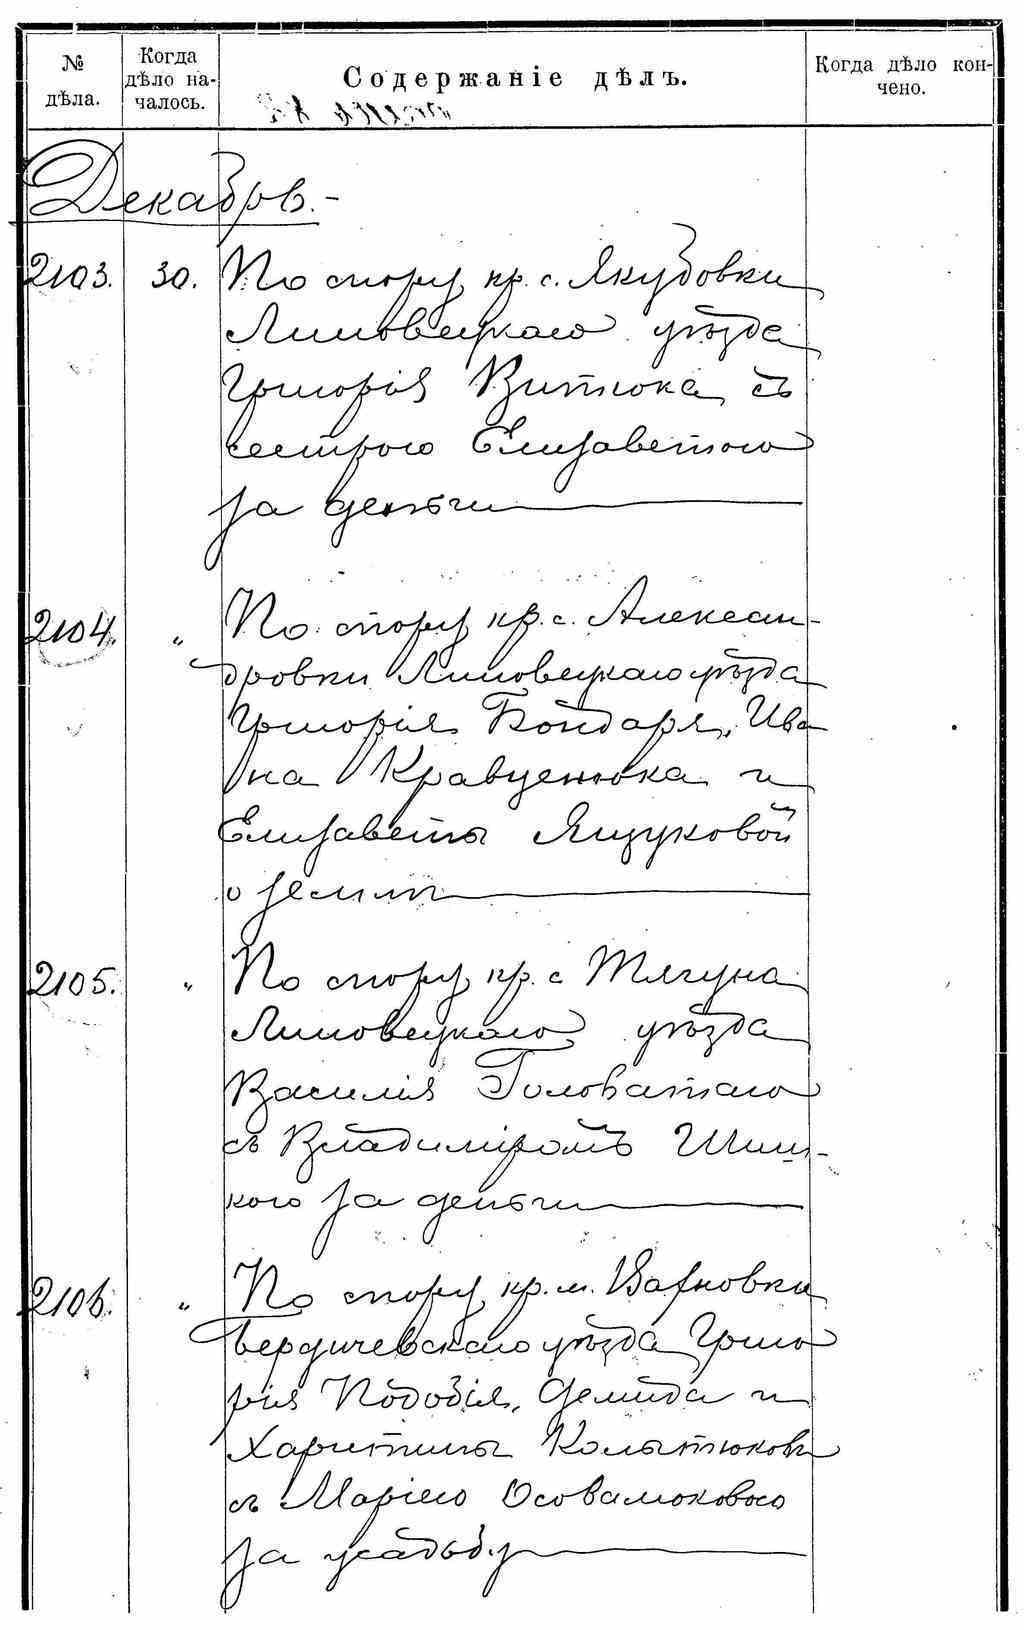 № дѣла.
Когда дѣло на-
чалось.
Содержаніе дѣлъ.
Когда дѣло кон-
чено.
Декабрь.-
2103. 30. По спору кр. с. Якубовки
Липовецкаго уѣзда
Григорія Витюка съ
сестрою Елизаветою
за деньги
2104. " По спору кр. с. Алексан-
дровки Липовецкаго уѣзда
Григорія Бондаря, Ива
на Кравценюка и
Елизаветы Ящуковой
о землѣ
2105. " По спору кр. с Тягуна
Липовецкаго уѣзда
Василія Головатаго
съ Владиміромъ
за деньги
2106. " По спору кр. м. Вахновки
Бердичевскаго уѣзда Григо
рія Подобія, Демида и
Харитины
съ Маріею
за усадьбу